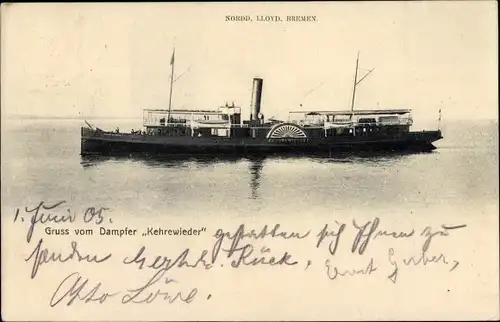 NORDD. LLOYD, BREMEN.
1. Juni 05.
Gruss vom Dampfer „Kehrewieder" gestatten sich Ihnen zu
senden Rück, Ernst Gerber,
Otto Löwe.